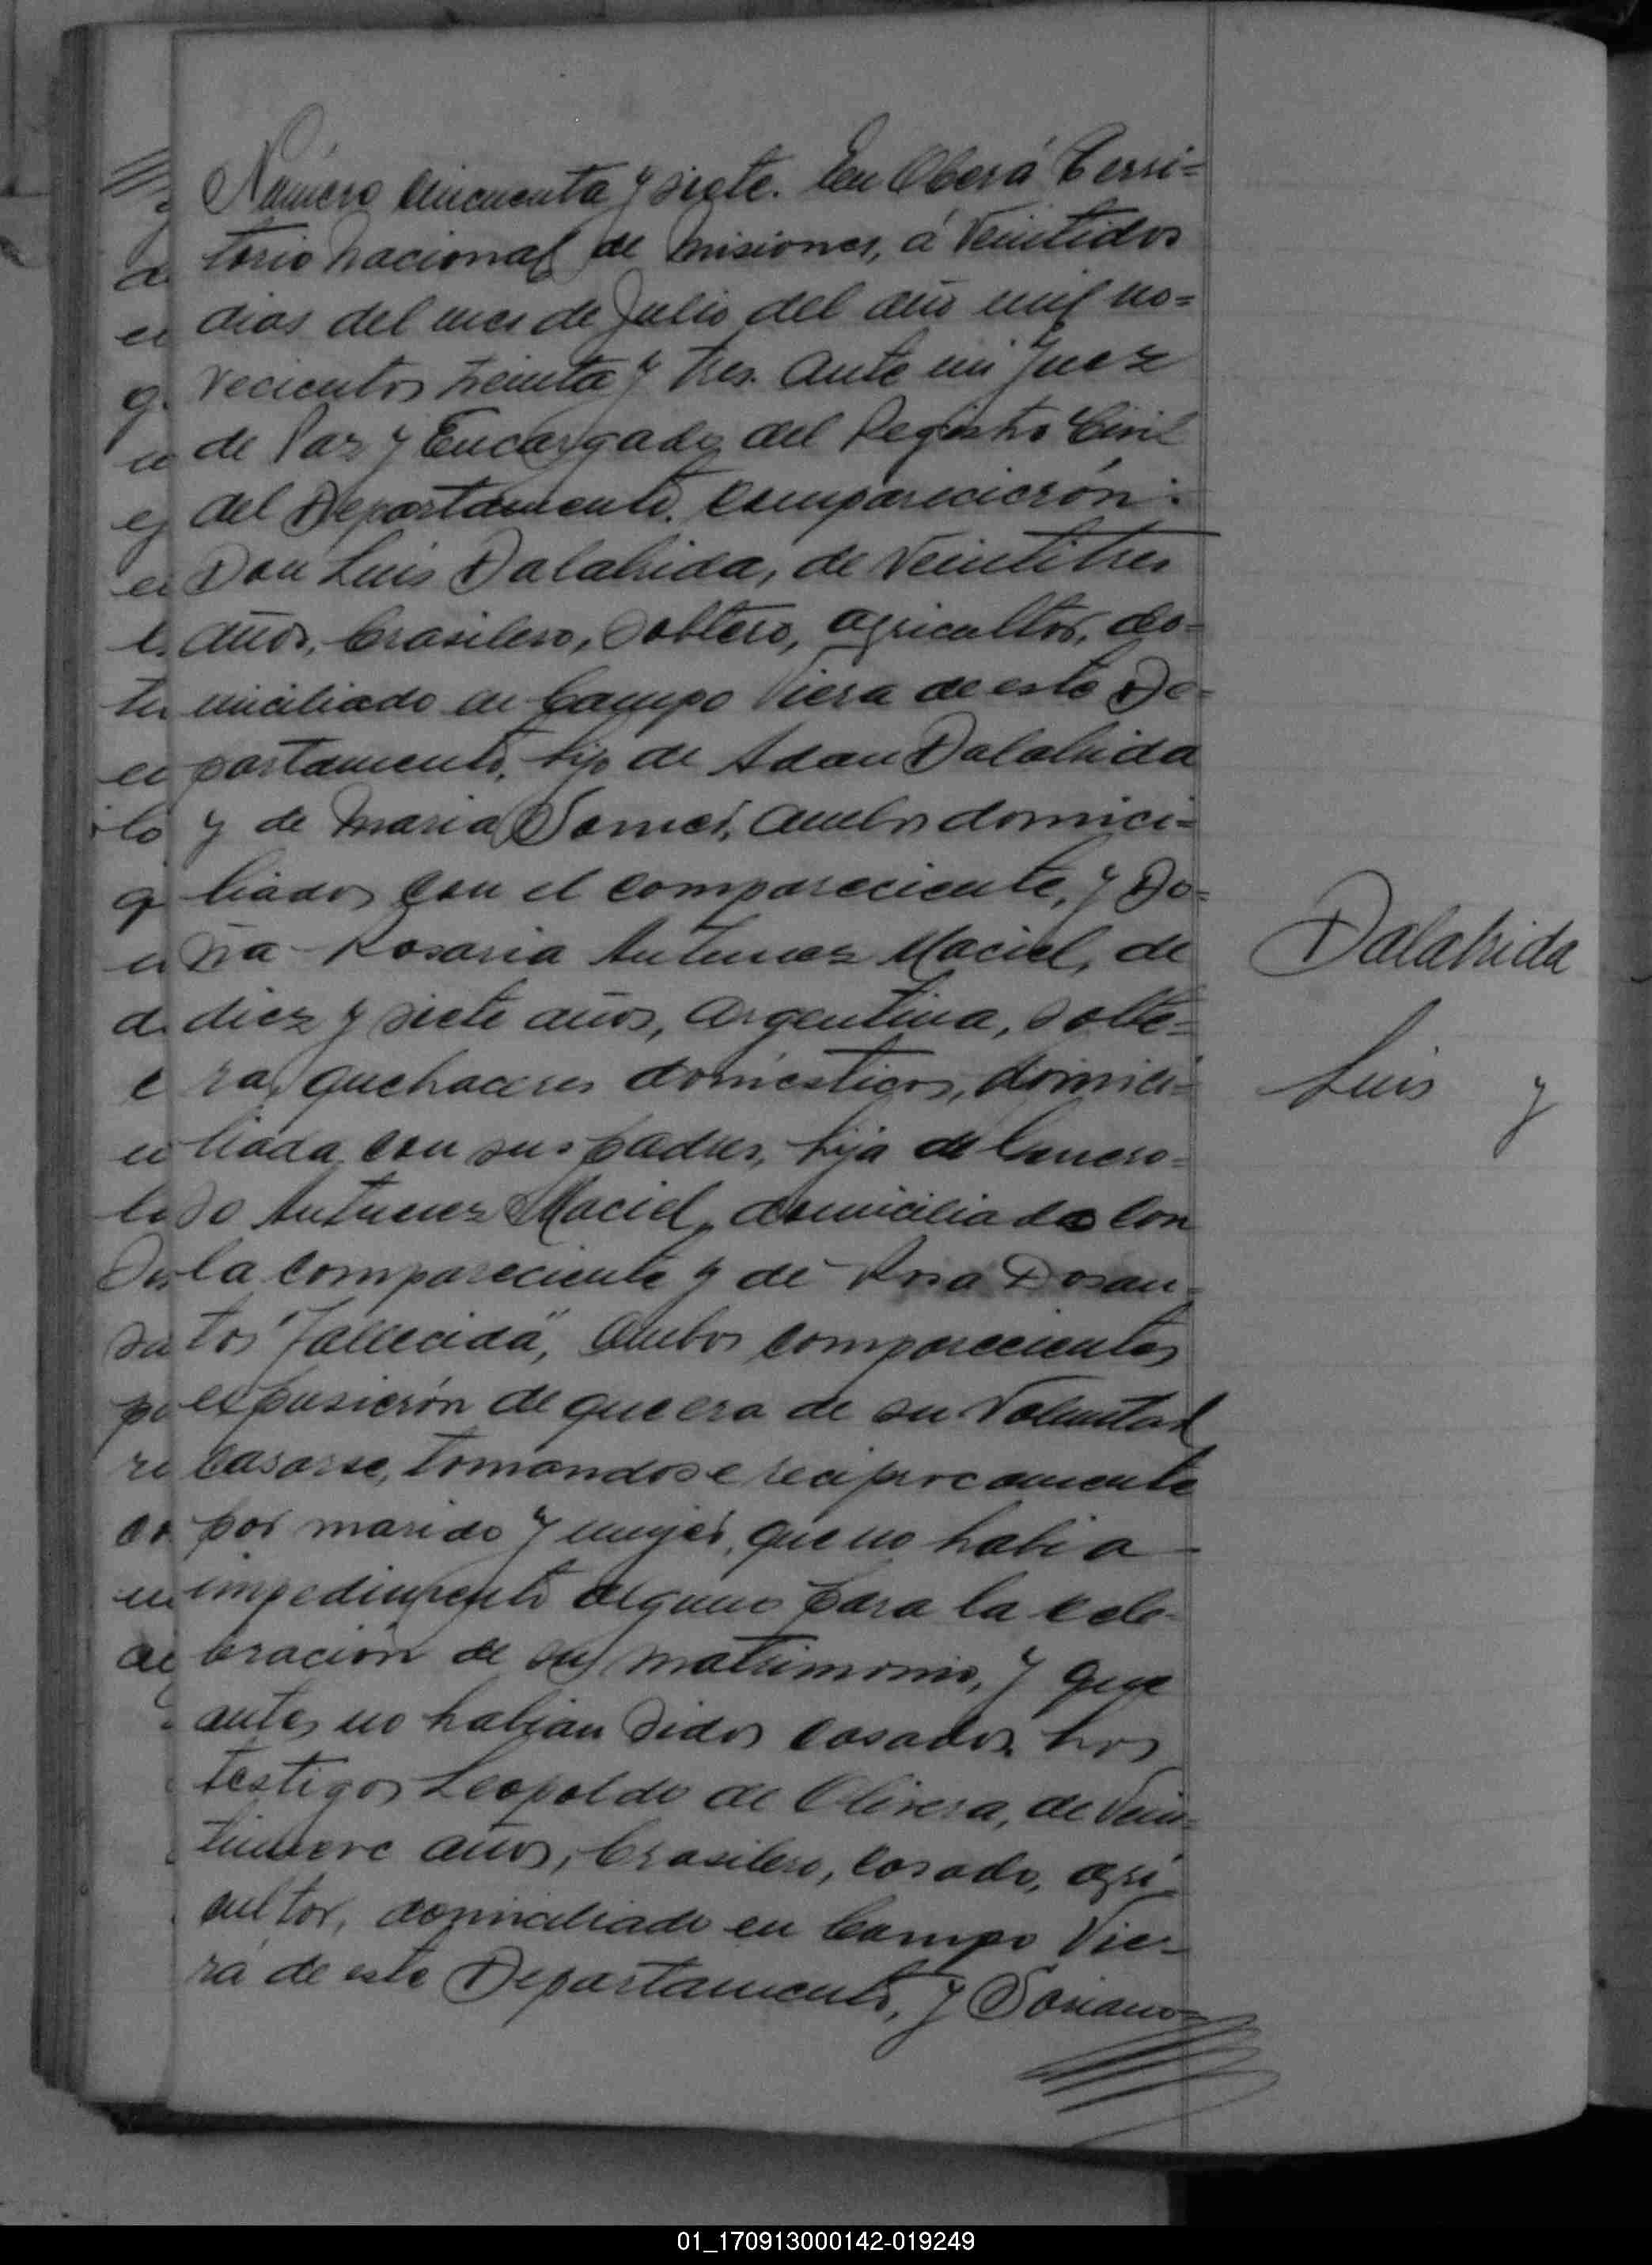 Número cincuenta y siete. En Oberá Terri=
torio nacional de Misiones, á Veintidos
dias del mes de Julio del año mil no=
vecientos treinta y tres. Ante mi Juez
de Paz y Encargado del Registro Civil
del Departamento. Comparecierón:
Don Luis Dalabrida, de Veintitres
años, brasilero, Soltero, agricultor, do=
miciliado en Campo Viera de este De=
partamento, hijo de Adan Dalabrida
y de Maria Gomes, Ambos domici=
liados con el compareciente, y Do=
ña Rosaria Antunez Maciel, de
diez y siete años, Argentina, Solte=
ra, quehaceres domésticos, domici=
liada con sus padres, hija de
Antunez Maciel, domiciliado con
la compareciente y de Rosa Dosan=
tos "fallecida", Ambos comparecientes
expusierón de que era de su Voluntad
casarse, tomandose reciprocamente
por marido y mujer, que no habia
impedimento alguno para la cele=
bración de su matrimonio, y que
antes no habian sidos casados. Los
testigos Leopoldo de Olivera, de Vein=
tinueve años, brasilero, casado, agri
cultor, domiciliado en Campo Vie=
ra de este Departamento, y
Dalabrida
Luis y
01_170913000142-019249